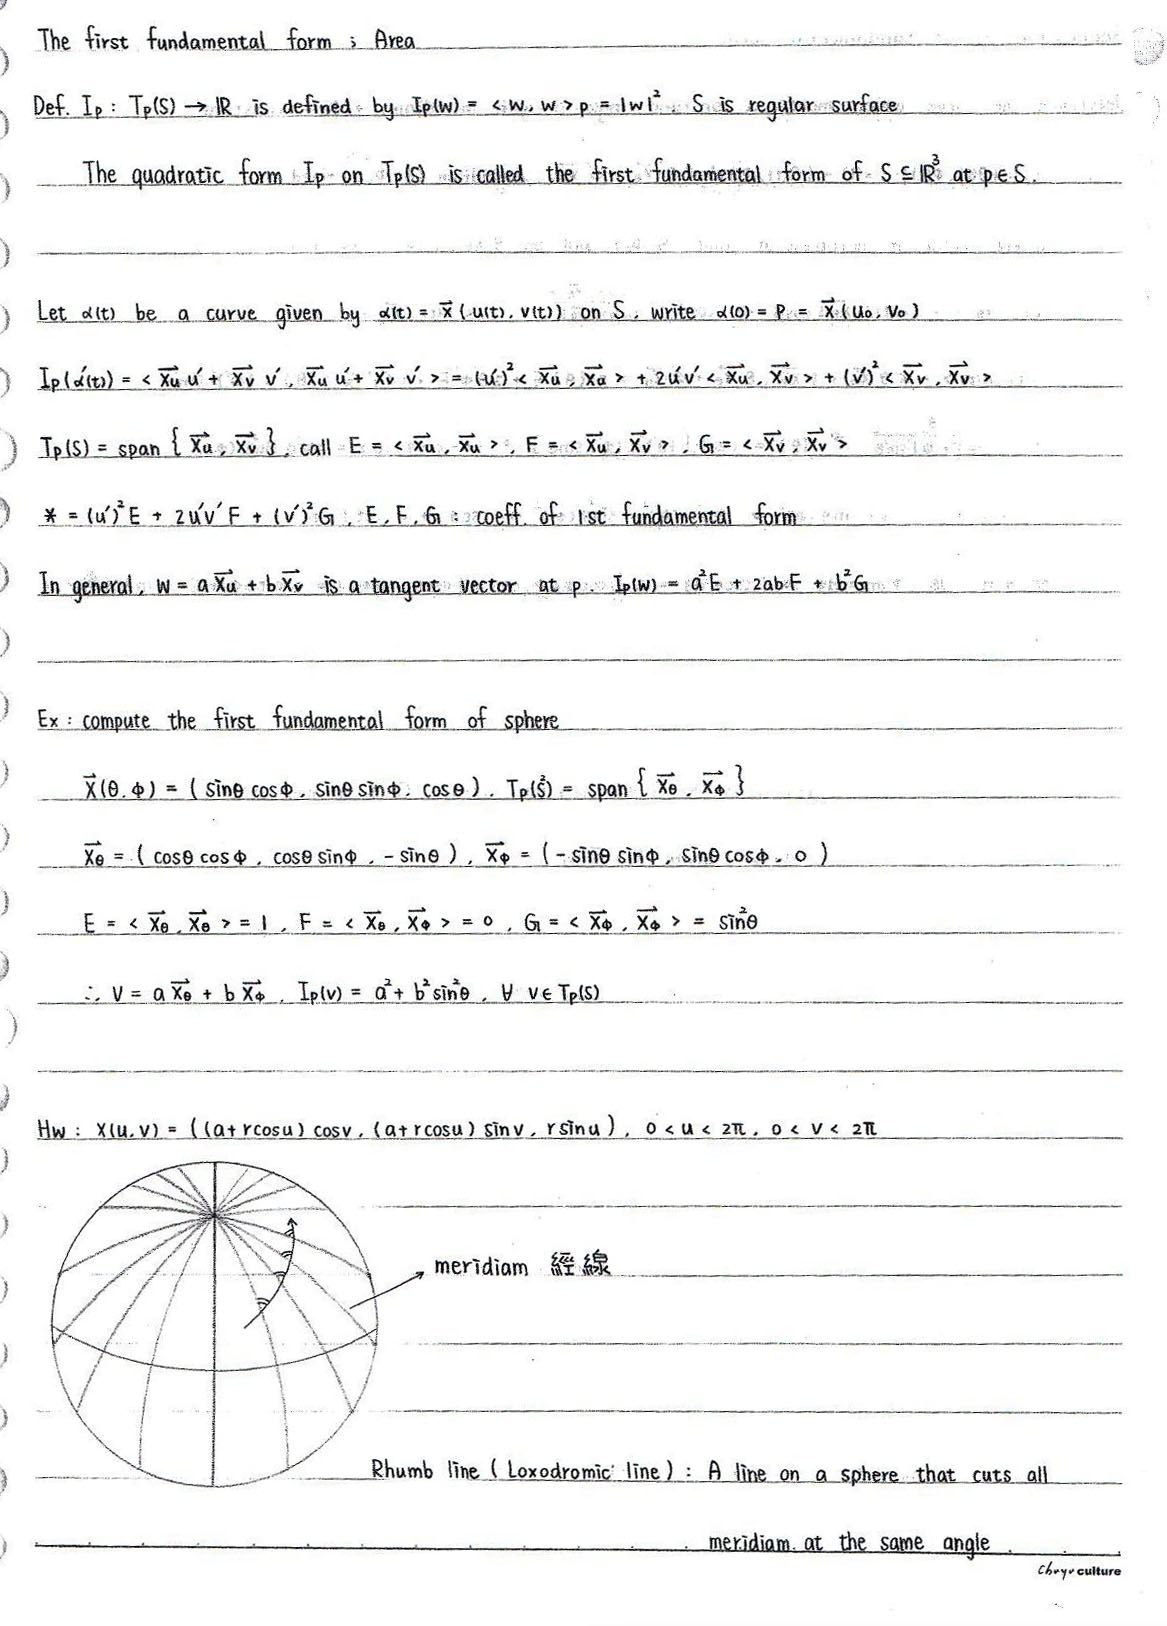 The first fundamental form ; Area
Def. Ip : Tp(S) → ℝ is defined by Ip(w) = <w, w>p = |w|². S is regular surface
The quadratic form Ip on Tp(S) is called the first fundamental form of S ⊆ ℝ³ at p ∈ S.
Let α(t) be a curve given by α(t) = x⃗(u(t), v(t)) on S, write α(0) = P = x⃗(u₀, v₀)
Ip(α'(t)) = < x⃗u u' + x⃗v v', x⃗u u' + x⃗v v' > = (u')² < x⃗u, x⃗u > + 2u'v' < x⃗u, x⃗v > + (v')² < x⃗v, x⃗v >
Tp(S) = span { x⃗u, x⃗v }, call E = < x⃗u, x⃗u >, F = < x⃗u, x⃗v >, G = < x⃗v, x⃗v >
* = (u')²E + 2u'v'F + (v')²G, E, F, G : coeff. of 1st fundamental form
In general, w = a x⃗u + b x⃗v is a tangent vector at p. Ip(w) = a²E + 2abF + b²G
Ex : compute the first fundamental form of sphere
x⃗(θ, φ) = ( sinθ cosφ, sinθ sinφ, cosθ ). Tp(S²) = span { x⃗θ, x⃗φ }
x⃗θ = ( cosθ cosφ, cosθ sinφ, -sinθ ), x⃗φ = ( -sinθ sinφ, sinθ cosφ, 0 )
E = < x⃗θ, x⃗θ > = 1, F = < x⃗θ, x⃗φ > = 0, G = < x⃗φ, x⃗φ > = sin²θ
∴ v = a x⃗θ + b x⃗φ, Ip(v) = a² + b² sin²θ, ∀ v ∈ Tp(S)
Hw : X(u, v) = ((a+rcosu) cosv, (a+rcosu) sinv, rsinu), 0 < u < 2π, 0 < v < 2π
meridiam 經線
Rhumb line ( Loxodromic line ) : A line on a sphere that cuts all
meridiam at the same angle
Chuyu culture